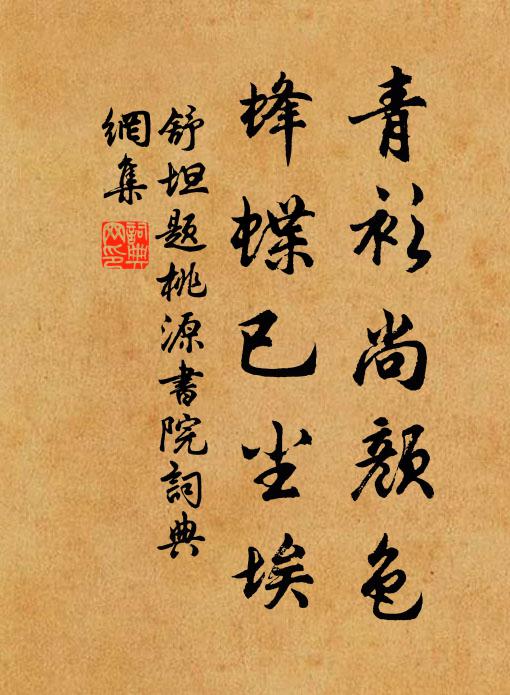 青衫尚颜色
蜂蝶已尘埃
舒坦题桃源书院词典
网集
词典网印